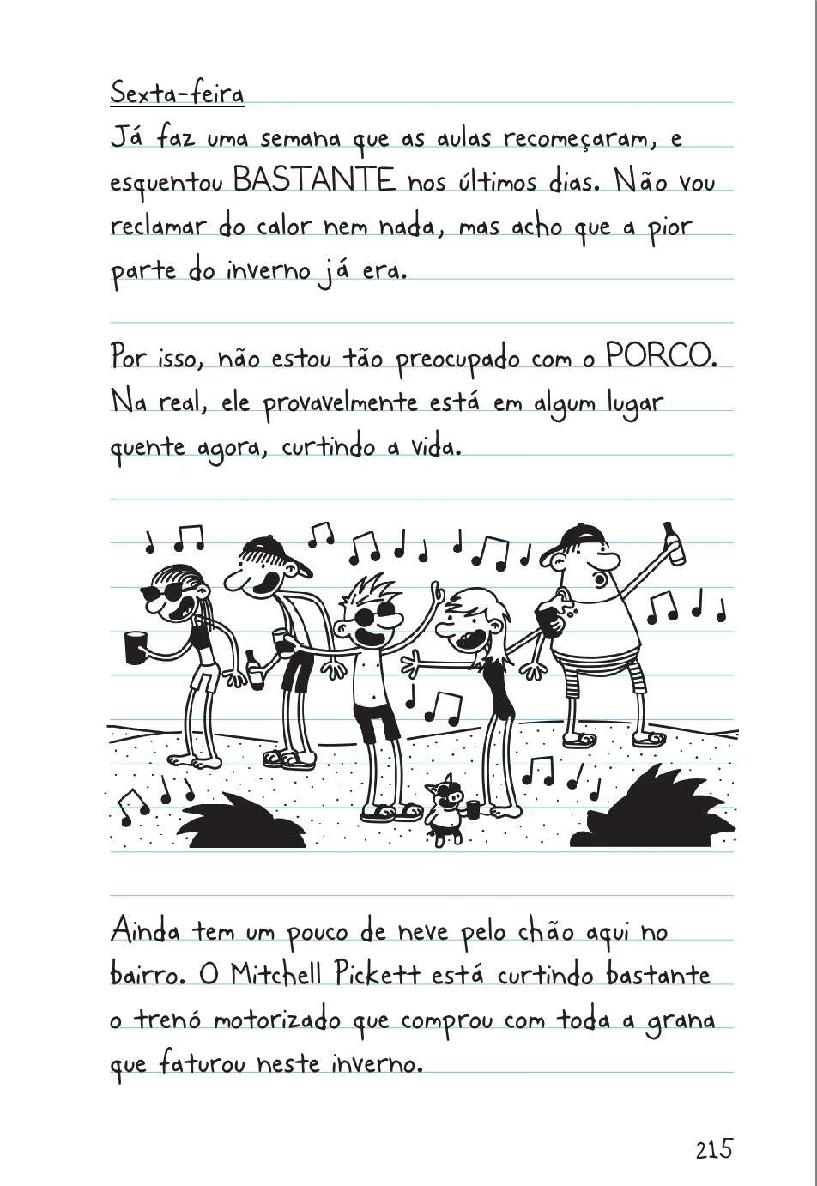 Sexta-feira
Já faz uma semana que as aulas recomeçaram, e
esquentou BASTANTE nos últimos dias. Não vou
reclamar do calor nem nada, mas acho que a pior
parte do inverno já era.
Por isso, não estou tão preocupado com o PORCO.
Na real, ele provavelmente está em algum lugar
quente agora, curtindo a vida.
Ainda tem um pouco de neve pelo chão aqui no
bairro. O Mitchell Pickett está curtindo bastante
o trenó motorizado que comprou com toda a grana
que faturou neste inverno.
215